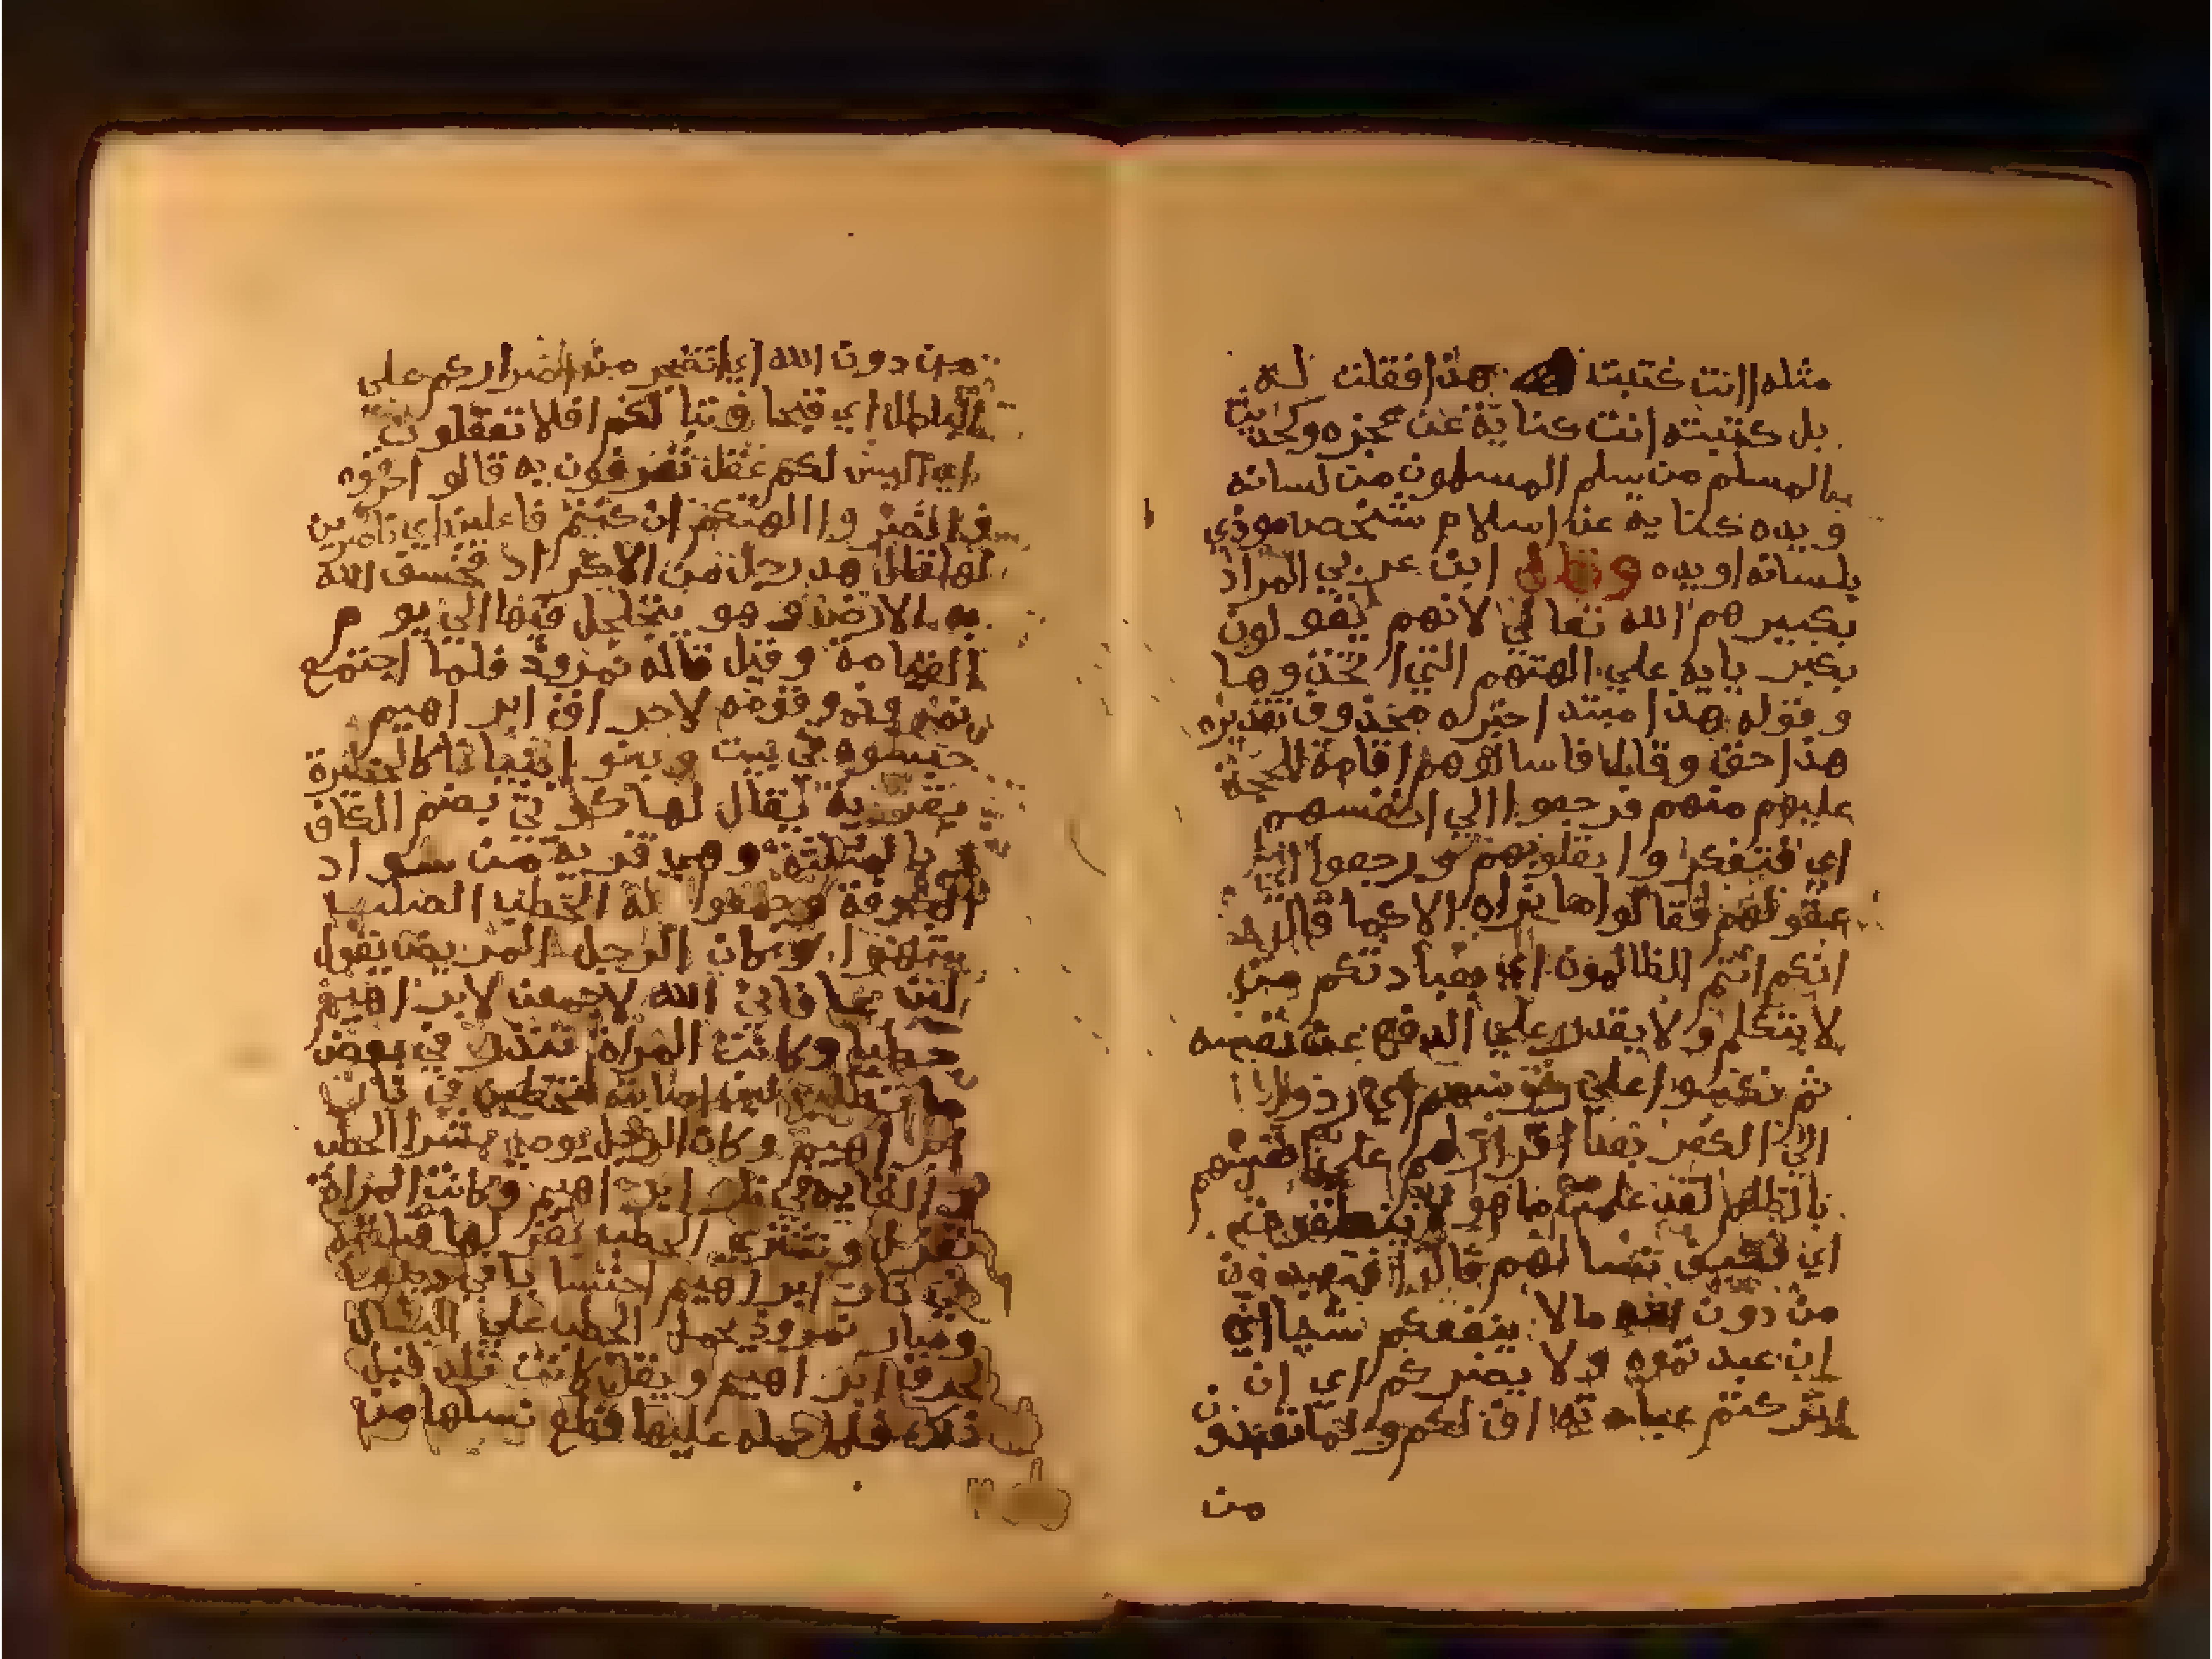 مثله اانت كتبت هذا فقلت له
بل كتبته انت كناية عن عجزه وكحديث
المسلم من سلم المسلمون من لسانه
و يده كناية عن اسلام شخص موذي
بلسانه او يده وقال ابن عربي المراد
بكبيرهم الله تعالي لانهم يقولون
بكبريايه علي الهتهم التي اتخذوها
و قوله هذا مبتدا خبره محذوف تقديره
هذا حق و قال فاسالوهم اقامة للحجة
عليهم منهم فرجعوا الي انفسهم
اي فتفكروا بقلوبهم و رجعوا الي
عقولهم فقالوا ما نراه الا كما قال
انكم انتم الظالمون اي بعبادتكم من
لا يتكلم و لا يقدر علي الدفع عن نفسه
ثم نكسوا علي روسهم اي ردوا
الي الكفر بعد اقرارهم علي انفسهم
بالظلم لقد علمت ما هو لا ينطقون
اي فكيف نسالهم قال افتعبدون
من دون الله مالا ينفعكم شيا اي
ان عبدتموه و لا يضركم اي ان
تركتم عبادته اف لكم و لما تعبدون
من
من دون الله اي اتضجر من اضراركم علي
الباطل اي قبحا و تبا لكم افلا تعقلون
اي اليس لكم عقل تعرفون به قالو احرقوه
وانصروا الهتكم ان كنتم فاعلين اي ناصرين
لها قال رجل من الاكراد فخسف الله
به الارض و هو يتجلجل فيها الي يوم
القيامة و قيل قاله نمرود فلما اجتمع
نمرود و قومه لاحراق ابراهيم
حبسوه في بيت و بنو بنيانا كالحظيرة
بقرية يقال لها كوثي بضم الكاف
بالمثلثة و هي قرية من سواد
الكوفة و جمعوا له الحطب الصلب
و كان الرجل المريض يقول
لئن عافاني الله لاجمعن لابراهيم
حطبا و كانت المراة تنذر في بعض
ما تطلب لئن اصابته لتحطبن في نار
ابراهيم و كان الرجل يوصي بشرا الحطب
و القايه في نار ابراهيم و كانت المراة
تغزل و تشتري الحطب بغزلها فتلقيه
في نار ابراهيم احتسابا في دينها
و صار نمرود يحمل الحطب علي البغال
لحرق ابراهيم و كانت تلد قبل
ذلك فلما حمله عليها قطع نسلها من